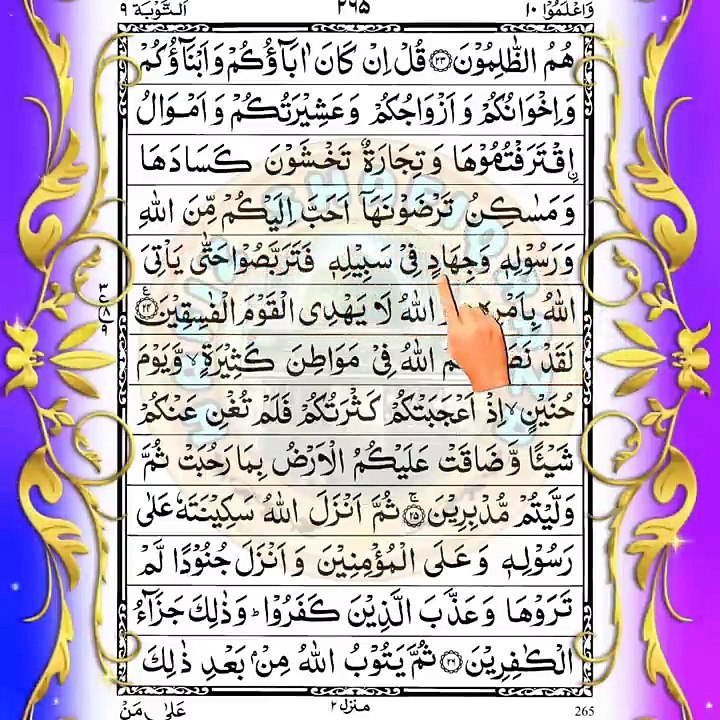 وَاعْلَمُوْۤا ۱۰ ۲۶۵ اَلتَّوْبَة ۹
هُمُ الظّٰلِمُوْنَ ۝۲۳ قُلْ اِنْ كَانَ اٰبَآؤُكُمْ وَاَبْنَآؤُكُمْ
وَاِخْوَانُكُمْ وَاَزْوَاجُكُمْ وَعَشِيْرَتُكُمْ وَاَمْوَالُ
ۨاقْتَرَفْتُمُوْهَا وَتِجَارَةٌ تَخْشَوْنَ كَسَادَهَا
وَمَسٰكِنُ تَرْضَوْنَهَاۤ اَحَبَّ اِلَيْكُمْ مِّنَ اللّٰهِ
وَرَسُوْلِهٖ وَجِهَادٍ فِيْ سَبِيْلِهٖ فَتَرَبَّصُوْا حَتّٰى يَاْتِيَ
اللّٰهُ بِاَمْرِهٖ اللّٰهُ لَا يَهْدِى الْقَوْمَ الْفٰسِقِيْنَ ۝۲۴
لَقَدْ اللّٰهُ فِيْ مَوَاطِنَ كَثِيْرَةٍ ۙ وَّيَوْمَ
حُنَيْنٍ ۙ اِذْ اَعْجَبَتْكُمْ كَثْرَتُكُمْ فَلَمْ تُغْنِ عَنْكُمْ
شَيْئًا وَّضَاقَتْ عَلَيْكُمُ الْاَرْضُ بِمَا رَحُبَتْ ثُمَّ
وَلَّيْتُمْ مُّدْبِرِيْنَ ۝۲۵ ثُمَّ اَنْزَلَ اللّٰهُ سَكِيْنَتَهٗ عَلٰى
رَسُوْلِهٖ وَعَلَى الْمُؤْمِنِيْنَ وَاَنْزَلَ جُنُوْدًا لَّمْ
تَرَوْهَا وَعَذَّبَ الَّذِيْنَ كَفَرُوْا ؕ وَذٰلِكَ جَزَآءُ
الْكٰفِرِيْنَ ۝۲۶ ثُمَّ يَتُوْبُ اللّٰهُ مِنْۢ بَعْدِ ذٰلِكَ
265 منزل ۲ عَلٰى مَنْ